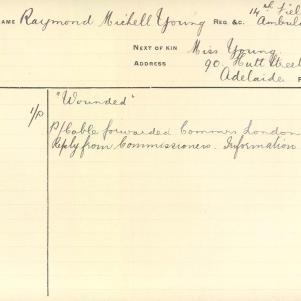 NAME Raymond Michell Young REG &C. 14th Fiel
Ambula
NEXT OF KIN Miss Young.
ADDRESS 90. Hutt Street
Adelaide
"Wounded"
P/Cable forwarded Commrs London
Reply from Commissioners. Information